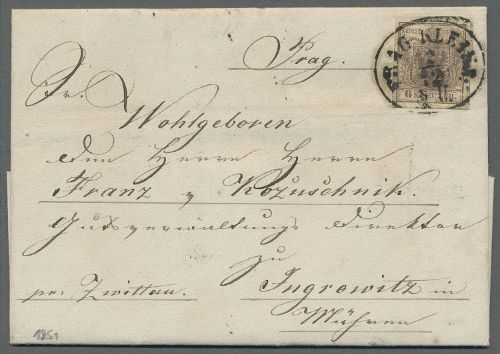 Prag.
PRAG KLEINS
6 KR
Sr.
Wohlgeboren
dem Herrn Herrn
Franz v Kožuschnik.
Gutsverwaltungs Direktor
zu
pr: Zwittau. Ingrowitz in
Mähren
1850